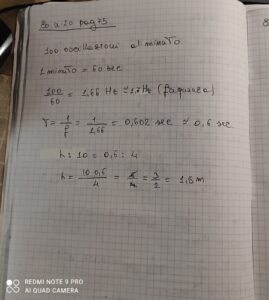 Es. n. 20 pag 75
100 oscillazioni al minuto
1 minuto = 60 sec
100/60 = 1,66 Hz ≈ 1,7 Hz (frequenza)
T = 1/f = 1/1,66 = 0,602 sec ≈ 0,6 sec
h : 10 = 0,6 : 4
h = 10 · 0,6 / 4 = 6/4 = 3/2 = 1,5 m
REDMI NOTE 9 PRO
AI QUAD CAMERA